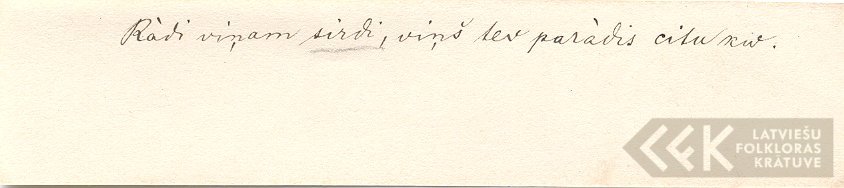 Rādi viņam sirdi, viņš tev parādis citu kw.
LATVIEŠU
FOLKLORAS
KRĀTUVE